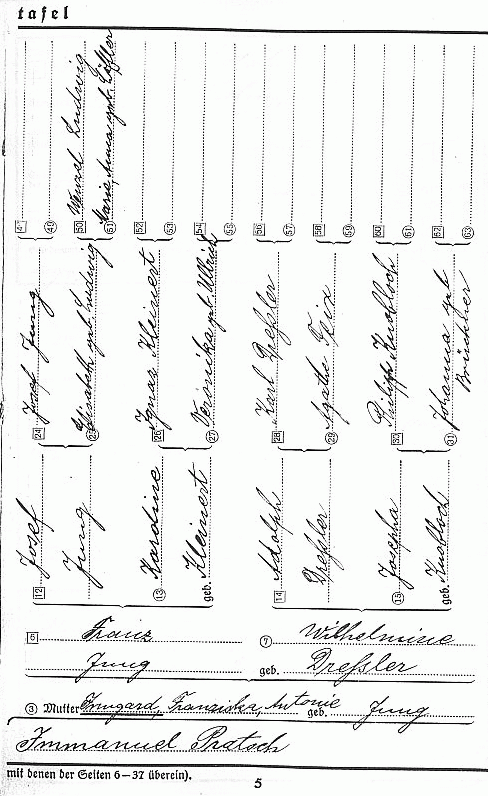 tafel
48 49 50 51 52 53 54 55 56 57 58 59 60 61 62 63
Wenzel Ludwig
Marie Anna geb. Löffler
24 Josef Jung
25 Elisabeth geb. Ludwig
26 Ignaz Kleinert
27 Veronika geb. Ullrich
28 Karl Dreßler
29 Agathe Feix
30 Philipp Knobloch
31 Johanna geb.
Brückner
12 Josef
Jung
13 Karoline
geb. Kleinert
14 Adolph
Dreßler
15 Josepha
geb. Knobloch
6 Franz
Jung
7 Wilhelmine
geb. Dreßler
3 Mutter Irmgard, Franziska, Antonie geb. Jung
Immanuel Pratsch
mit denen der Seiten 6—37 überein).
5